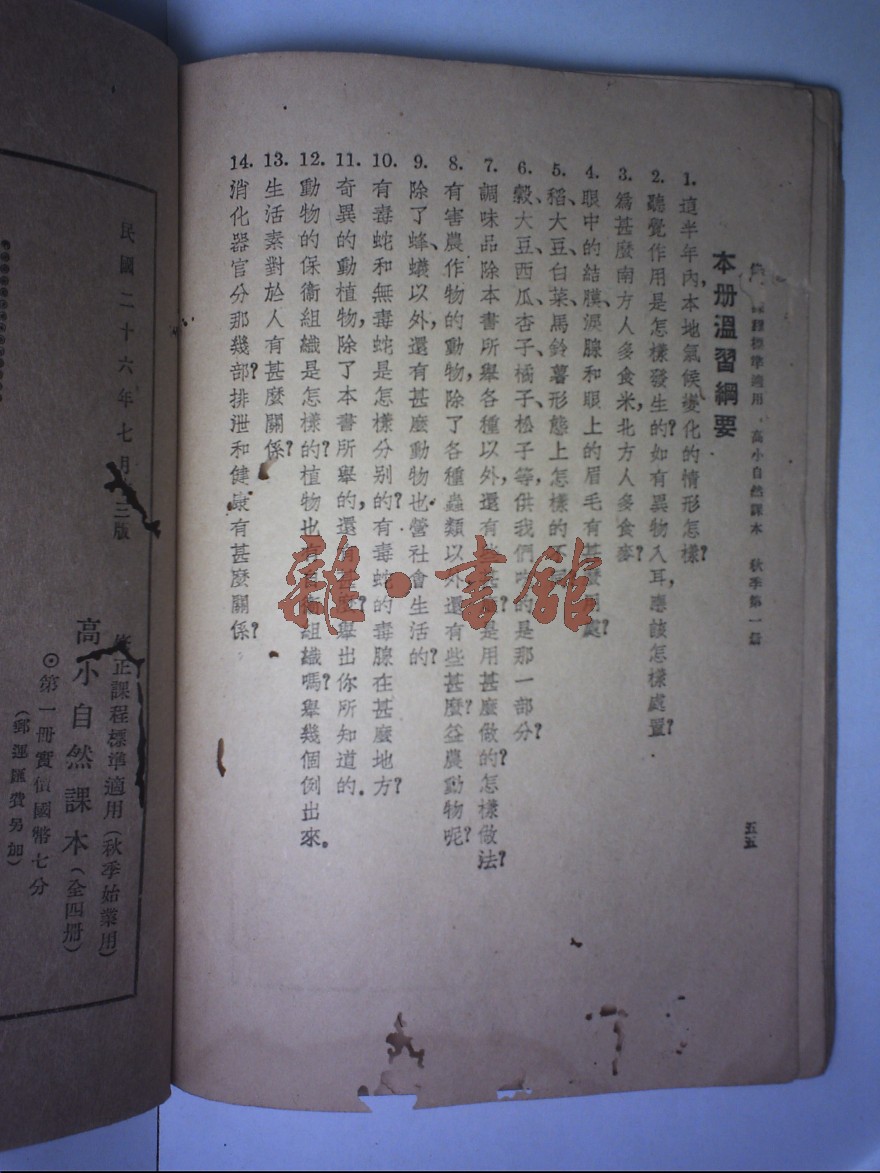 課程標準適用 高小自然課本 秋季第一冊
五五
本册溫習綱要
1. 這半年內,本地氣候變化的情形怎樣?
2. 聽覺作用是怎樣發生的?如有異物入耳,應該怎樣處置?
3. 爲甚麼南方人多食米,北方人多食麥?
4. 眼中的結膜、淚腺和眼上的眉毛有甚麼用處?
5. 稻、大豆、白菜、馬鈴薯形態上怎樣的不
6. 穀、大豆、西瓜、杏子、橘子、松子等,供我們吃的是那一部分?
7. 調味品除本書所舉各種以外,還有 是用甚麼做的?怎樣做法?
8. 有害農作物的動物,除了各種蟲類以外,還有些甚麼?益農動物呢?
9. 除了蜂、蟻以外,還有甚麼動物也營社會生活的?
10. 有毒蛇和無毒蛇是怎樣分別的?有毒蛇的毒腺在甚麼地方?
11. 奇異的動植物,除了本書所舉的,還有 舉出你所知道的.
12. 動物的保衞組織是怎樣的?植物也有 衞組織嗎?舉幾個例出來.
13. 生活素對於人有甚麼關係?
14. 消化器官分那幾部?排泄和健康有甚麼關係?
雜·書館
民國二十六年七月 三版
修正課程標準適用(秋季始業用)
高小自然課本(全四册)
⊙第一册實價國幣七分
(郵運匯費另加)